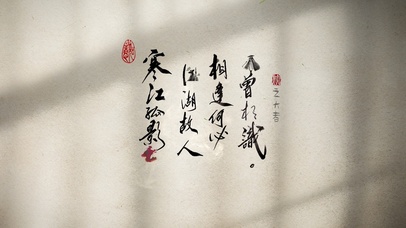 寒江孤影
湖故人
相逢何必
曾相識。
之大者